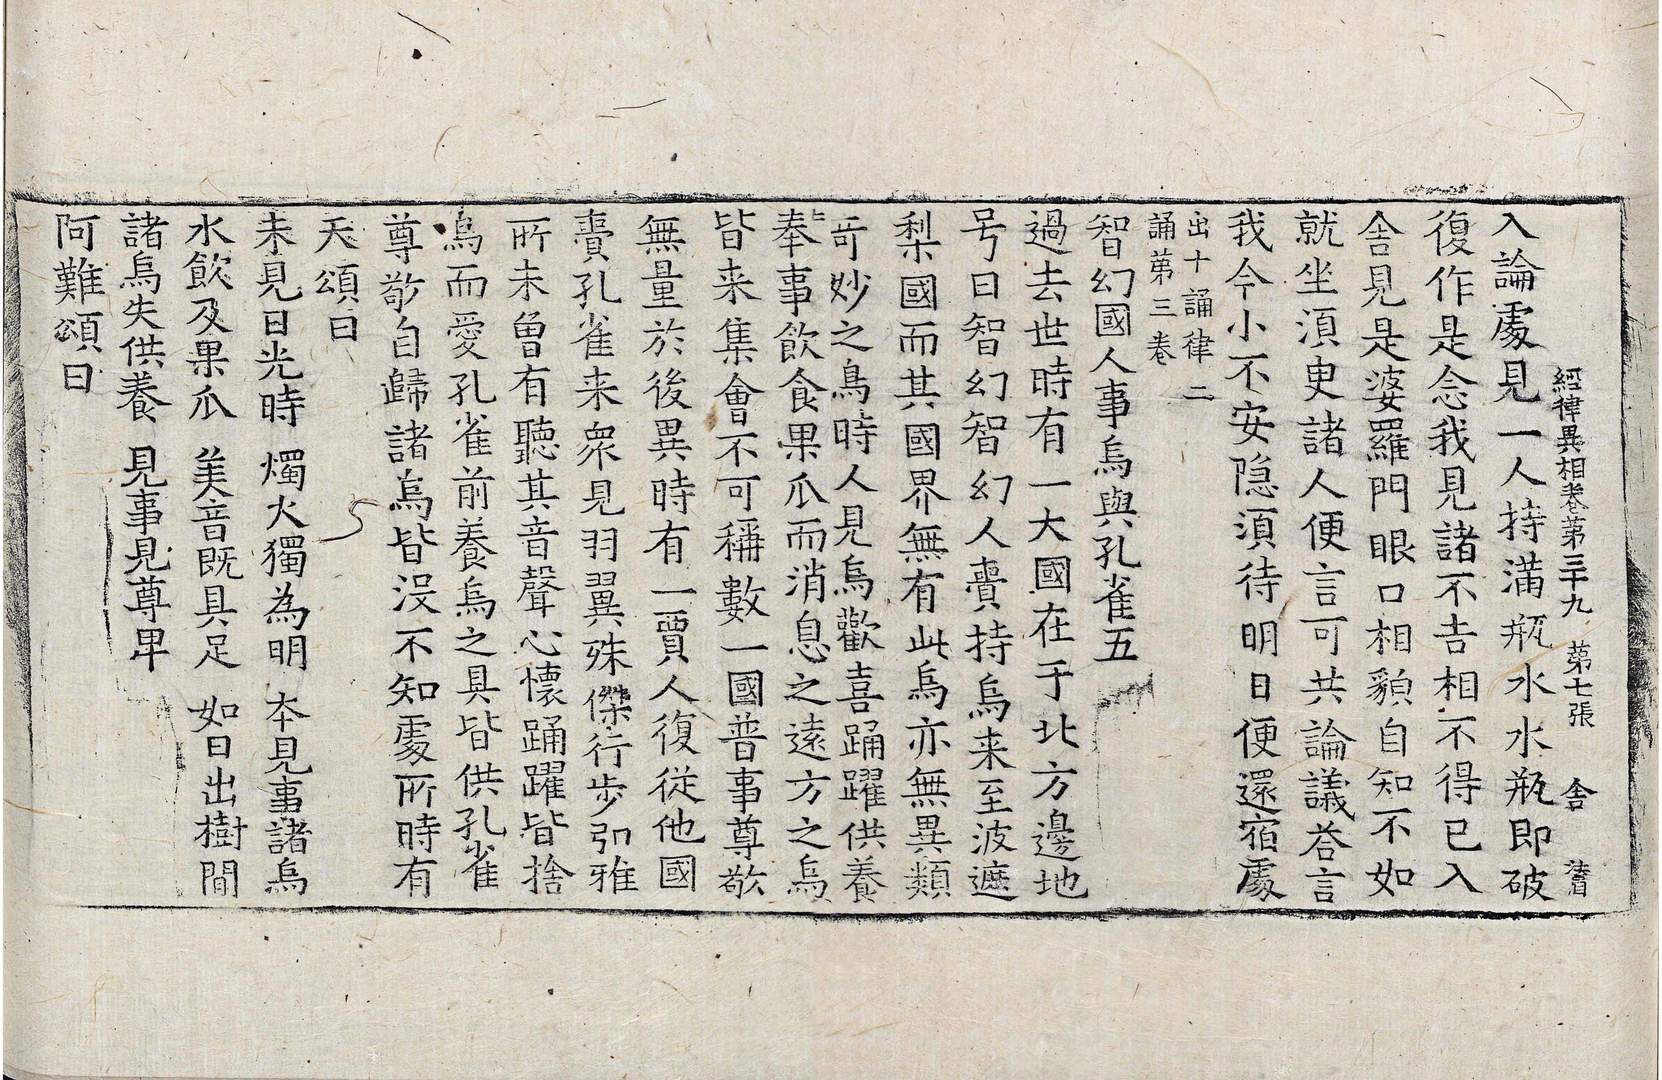 經律異相卷第三十九　第七張　舍
入論處見一人持滿瓶水水瓶即破
復作是念我見諸不吉相不得已入
舍見是婆羅門眼口相貌自知不如
就坐須臾諸人便言可共論議答言
我今小不安隱須待明日便還宿處
出十誦律二
誦第三卷
智幻國人事烏與孔雀五
過去世時有一大國在于北方邊地
号曰智幻智幻人賷持烏来至波遮
梨國而其國界無有此烏亦無異類
奇妙之鳥時人見烏歡喜踊躍供養
奉事飲食果瓜而消息之遠方之烏
皆来集會不可稱數一國普事尊敬
無量於後異時有一賈人復從他國
賷孔雀来衆見羽翼殊傑行步弘雅
所未曾有聽其音聲心懷踊躍皆捨
烏而愛孔雀前養烏之具皆供孔雀
尊敬自歸諸烏皆没不知處所時有
天頌曰
未見日光時　燭火獨為明　本見事諸烏
水飲及果瓜　美音既具足　如日出樹間
諸烏失供養　見事見尊卑
阿難頌曰